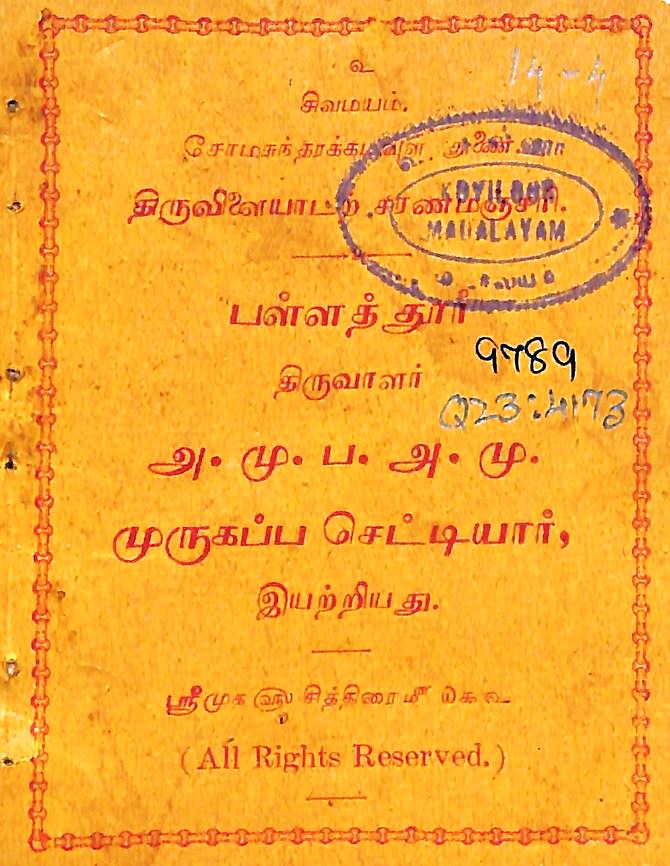 உ
14-4
சிவமயம்.
சோமசுந்தரக்கடவுள் துணை.
திருவிளையாடற் சரணமஞ்சரி.
KOVILOOR
MADALAYAM
பள்ளத்தூர்
9789
திருவாளர்
Q23:4173
அ. மு. ப. அ. மு.
முருகப்ப செட்டியார்,
இயற்றியது.
ஸ்ரீமுக ௵ சித்திரை ௴
(All Rights Reserved.)